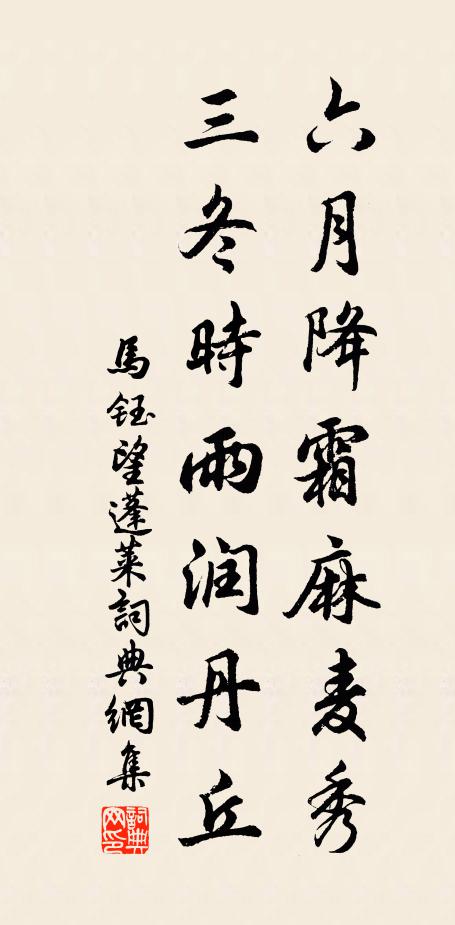 六月降霜麻麦秀
三冬時雨润丹丘
馬鈺望蓬莱詞典網集
詞典网印